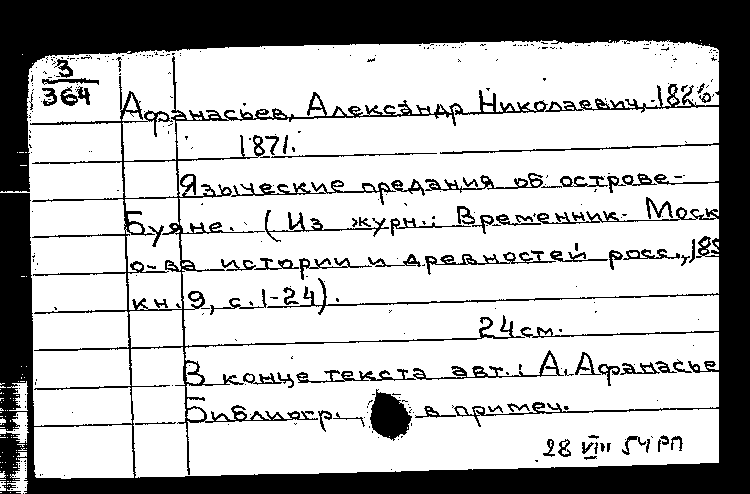 3
364
Афанасьев, Александр Николаевич, 1826-
1871.
Языческие предания об острове-
Буяне. (Из журн.: Временник Моск
о-ва истории и древностей росс., 185
кн. 9, с. 1-24).
24 см.
В конце текста авт.: А. Афанасье
Библиогр. в примеч.
28 VIII 54 РП